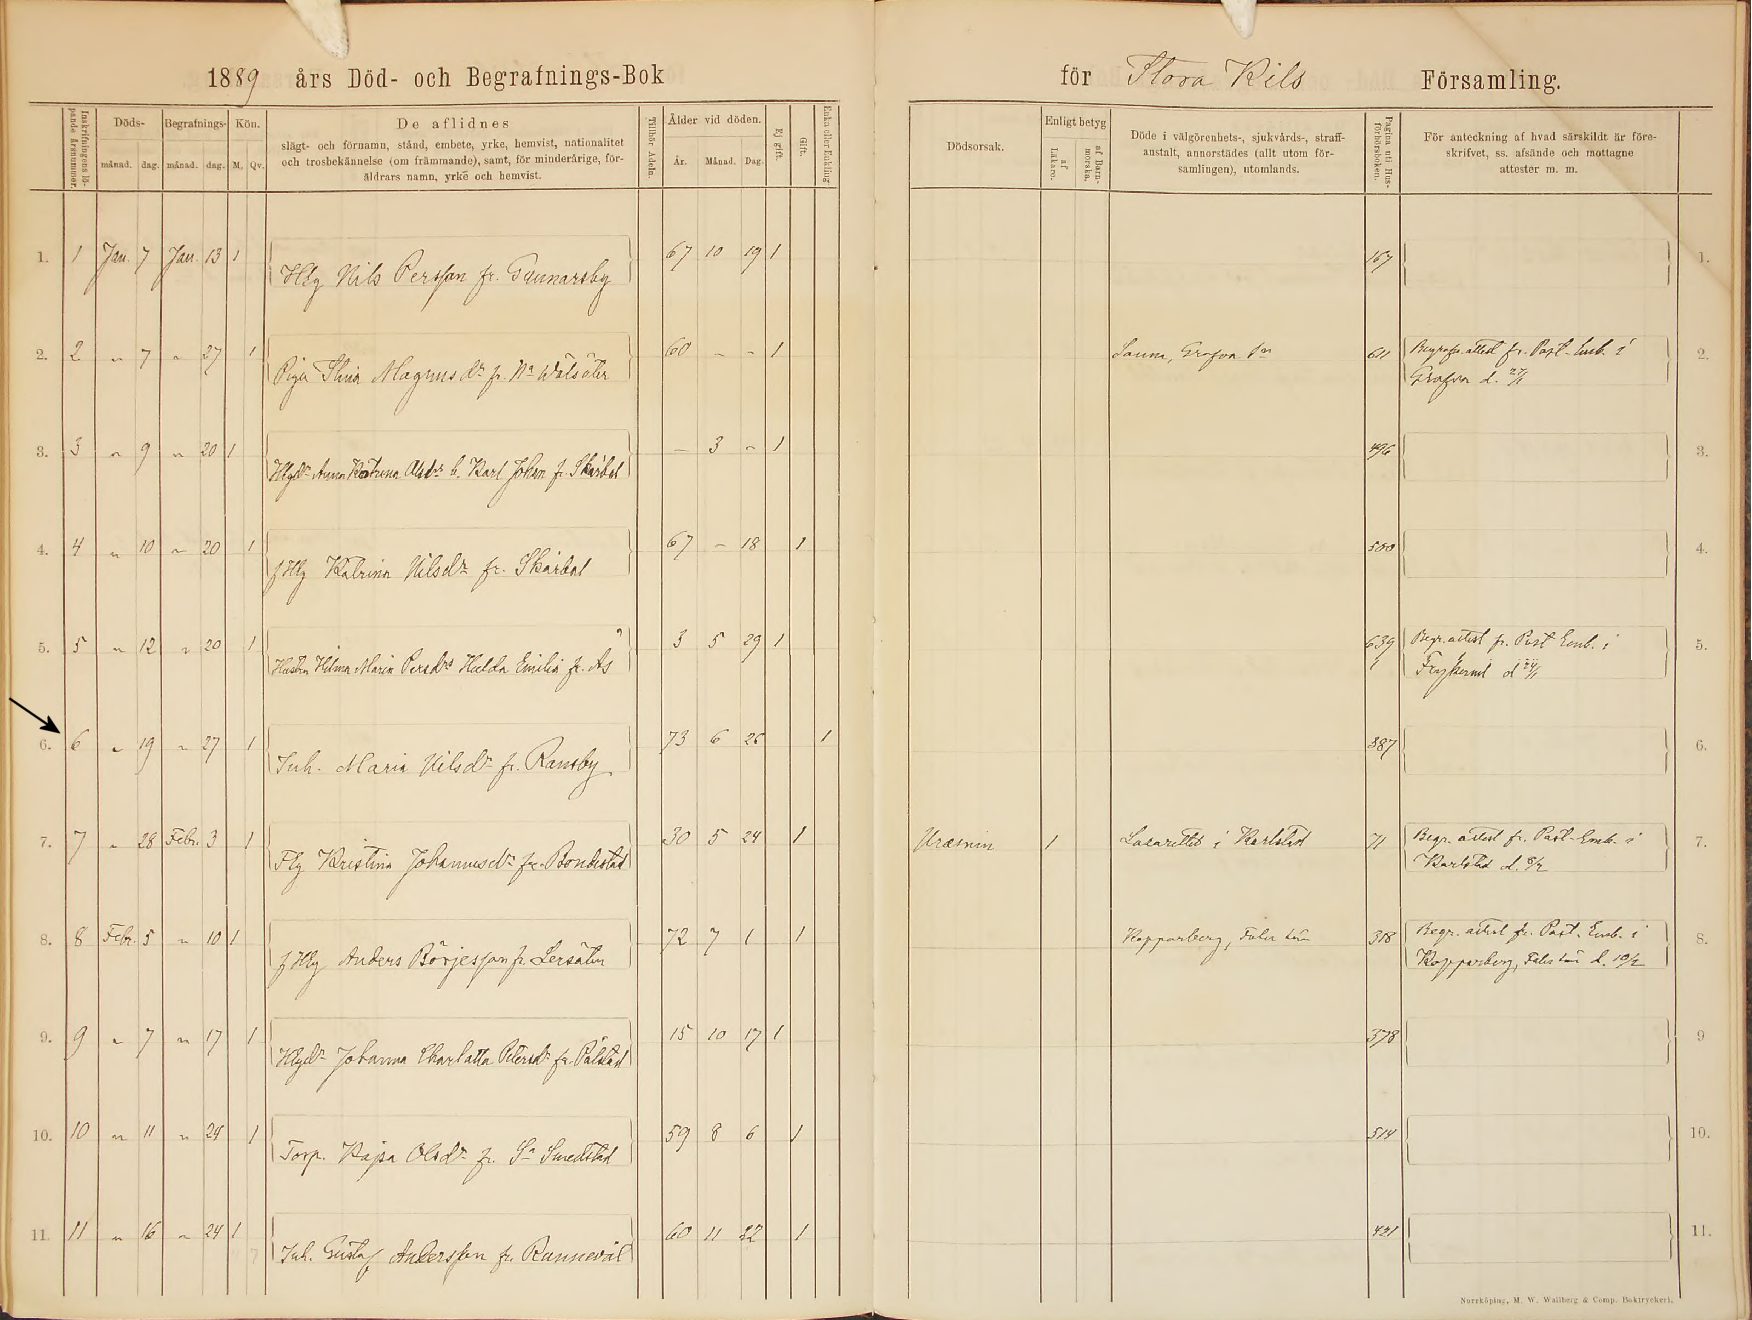 1889 års Död- och Begrafnings-Bok
för Stora Kils Församling.
Inskrifningens löpande årsnummer.
Döds-
månad. dag.
Begrafnings-
månad. dag.
Kön.
M. Qv.
De aflidnes
slägt- och förnamn, stånd, embete, yrke, hemvist, nationalitet
och trosbekännelse (om främmande), samt, för minderårige, för-
äldrars namn, yrke och hemvist.
Tillhör Adeln.
Ålder vid döden.
År. Månad. Dag.
Ej gift.
Gift.
Enka eller Enkling.
Dödsorsak.
Enligt betyg
af Läkare.
af Barnmorska.
Döde i välgörenhets-, sjukvårds-, straff-
anstalt, annorstädes (allt utom för-
samlingen), utomlands.
Pagina uti Husförhörsboken.
För anteckning af hvad särskildt är före-
skrifvet, ss. afsände och mottagne
attester m. m.
1. 1 Jan. 7 Jan. 13 1 Hlg Nils Persson fr. Gunnarsby 67 10 19 1 167 1.
2. 2 " 7 " 27 1 Piga Stina Magnusdr fr. Na Wålsäter 60 - - 1 Sunne, Grafva 611 Begrafn.attest fr. Past. Emb. i
Grafva d. 27/1 2.
3. 3 " 9 " 20 1 Hlgdr Anna Katrina Olsdrs b. Karl Johan fr Skårbol - 3 - 1 496 3.
4. 4 " 10 " 20 1 f Hlg Katrina Nilsdr fr. Skårbol 67 - 18 1 500 4.
5. 5 " 12 " 20 1 Hustru Hilma Maria Persdrs Hulda Emilia fr. Ås 3 5 29 1 639 Begr. attest fr. Past Emb. i
Frykerud d 24/1 5.
6. 6 " 19 " 27 1 Inh. Maria Nilsdr fr. Ransby 73 6 26 1 387 6.
7. 7 " 28 Febr. 3 1 Flg Kristina Johannesdr fr. Bondestad 30 5 24 1 Uraemin 1 Lasarettet i Karlstad 71 Begr. attest fr. Past. Emb. i
Karlstad d. 8/2 7.
8. 8 Febr. 5 " 10 1 f Hlg Anders Börjesson fr Lersätter 72 7 1 1 Kopparberg, Falu län 318 Begr. attest fr. Past. Emb. i
Kopparberg, Falu län d. 10/2 8.
9. 9 " 7 " 17 1 Hlgdr Johanna Charlotta Petersdr fr. Pålstad 15 10 17 1 378 9
10. 10 " 11 " 24 1 Torp. Kajsa Olsdr fr. Sa Smedstad 59 8 6 1 514 10.
11. 11 " 16 " 24 1 Inh. Gustaf Andersson fr. Runnevål 60 11 22 1 421 11.
Norrköping, M. W. Wallberg & Comp. Boktryckeri.